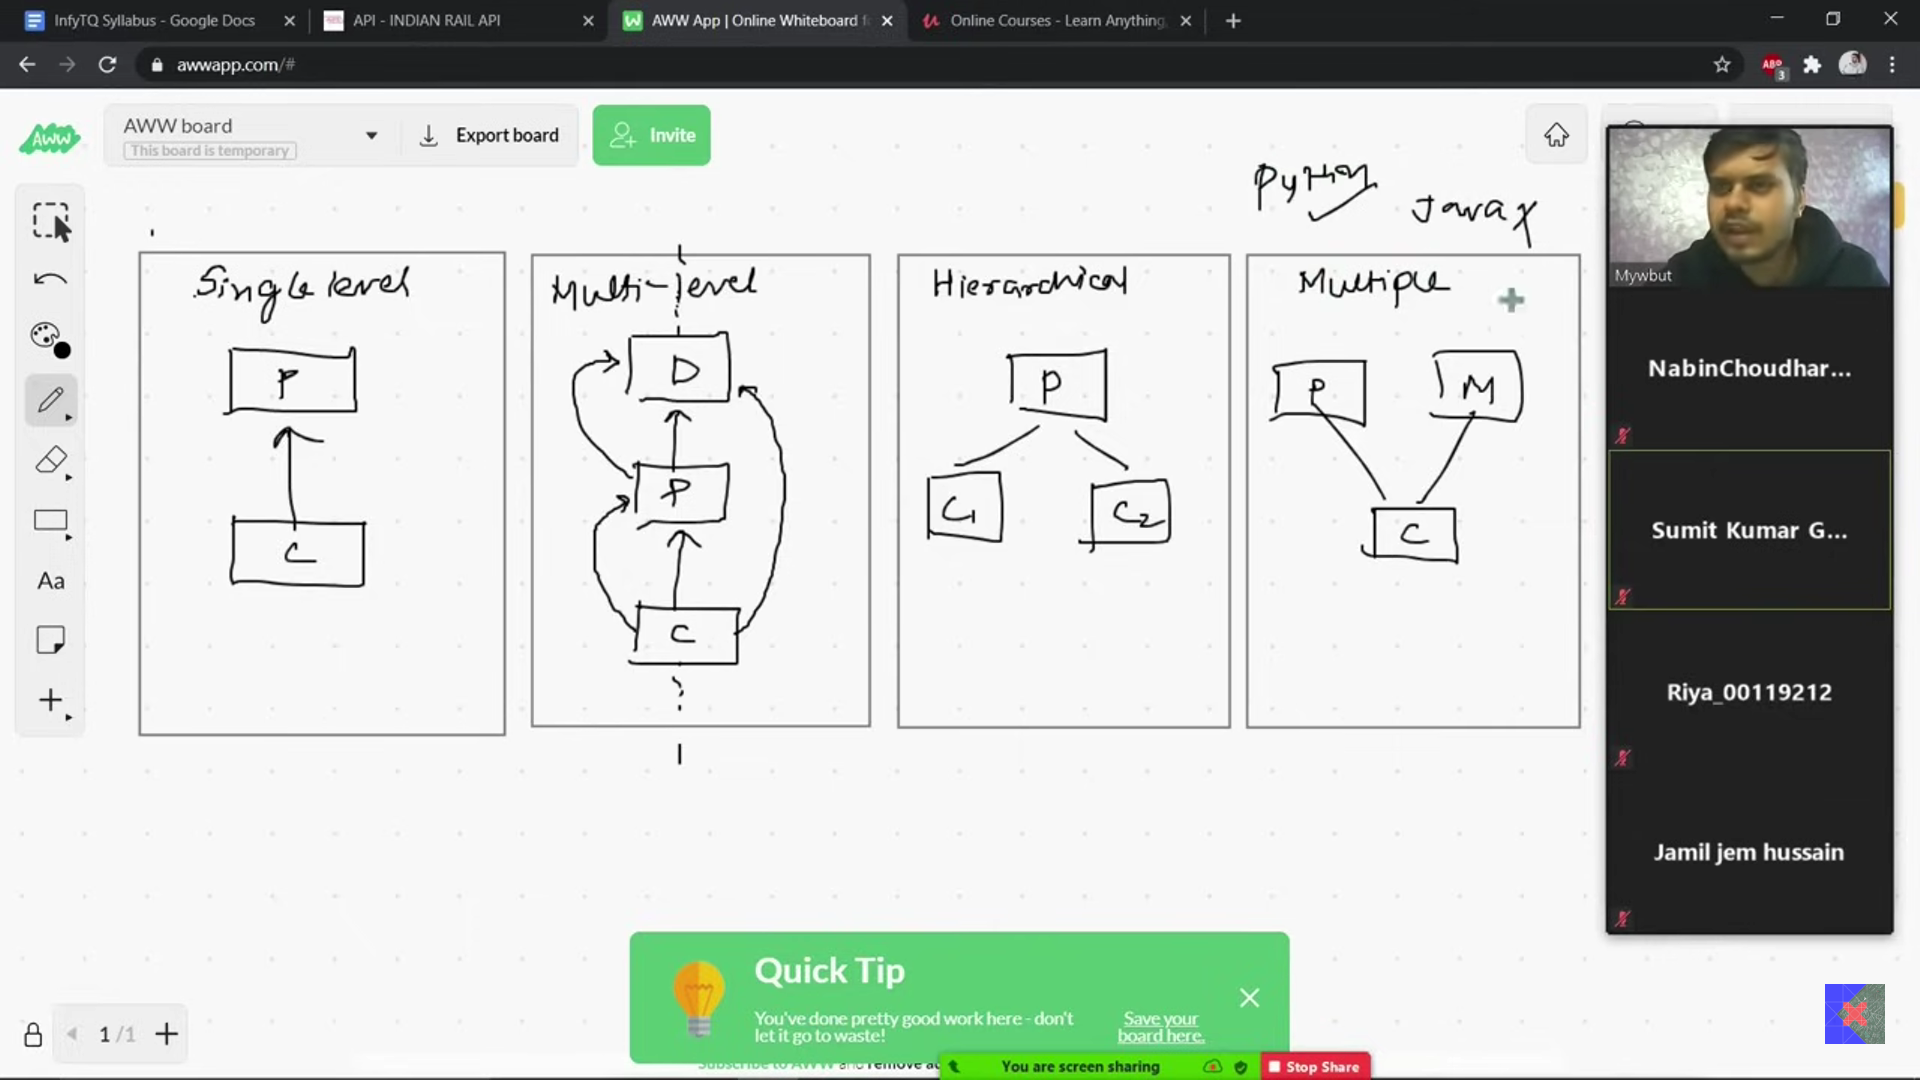 InfyTQ Syllabus - Google Docs
API - INDIAN RAIL API
AWW App | Online Whiteboard f
Online Courses - Learn Anything,
awwapp.com/#
ABP
3
AWW
AWW board
This board is temporary
Export board
Invite
Python
Java x
Mywbut
Single level
P
C
Multi-level
D
P
C
Hierarchical
P
C1
C2
Multiple
P
M
C
Aa
NabinChoudhar...
Sumit Kumar G...
Riya_00119212
Jamil jem hussain
Quick Tip
You've done pretty good work here - don't
let it go to waste!
Save your
board here.
1 /1
Subscribe to AWW and remove ad
You are screen sharing
Stop Share